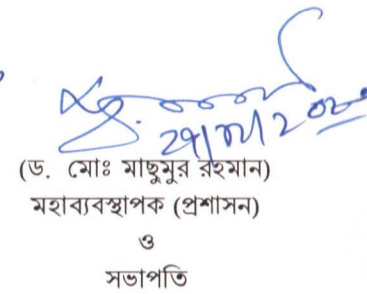 (ড. মোঃ মাছুমুর রহমান)
মহাব্যবস্থাপক (প্রশাসন)
ও
সভাপতি